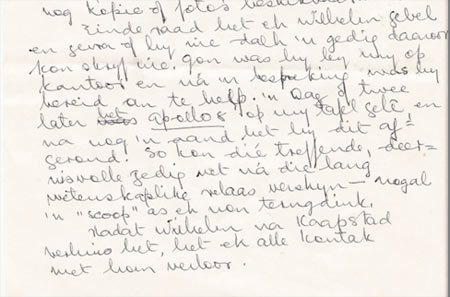 nog kopie of foto's beskikbaar
Einde raad het ek Wilhelm gebel
en gevra of hy nie dalk 'n gedig daaroor
kon skryf nie. Gou was hy by my op
kantoor en ná 'n bespreking was hy
bereid om te help. 'n Dag of twee
later het apollos op my tafel gelê en
na nog 'n aand het hy dit af=
gerond. So kon dié treffende, deer=
nisvolle gedig net ná die lang
wetenskaplike relaas verskyn — nogal
'n "scoop" as ek nou terugdink.
Nadat Wilhelm na Kaapstad
verhuis het, het ek alle kontak
met hom verloor.